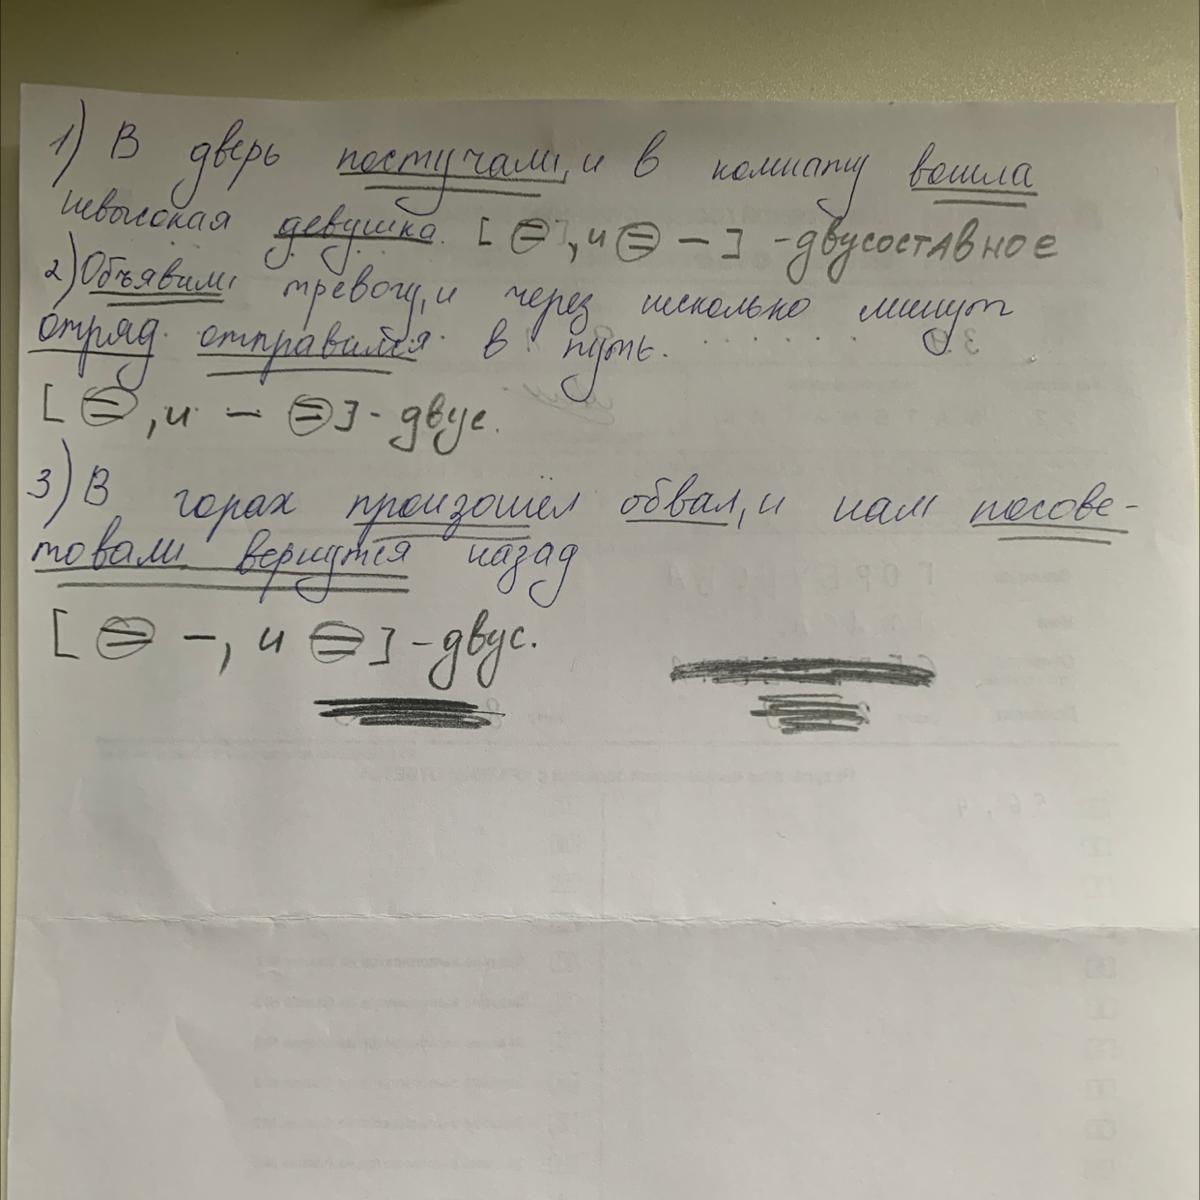 1) В дверь постучали, и в комнату вошла
невысокая девушка. [ = , и = – ] - двусоставное
2) Объявили тревогу, и через несколько минут
отряд отправился в путь.
[ = , и – = ] - двус.
3) В горах произошёл обвал, и нам посове-
товали вернутся назад
[ = – , и = ] - двус.